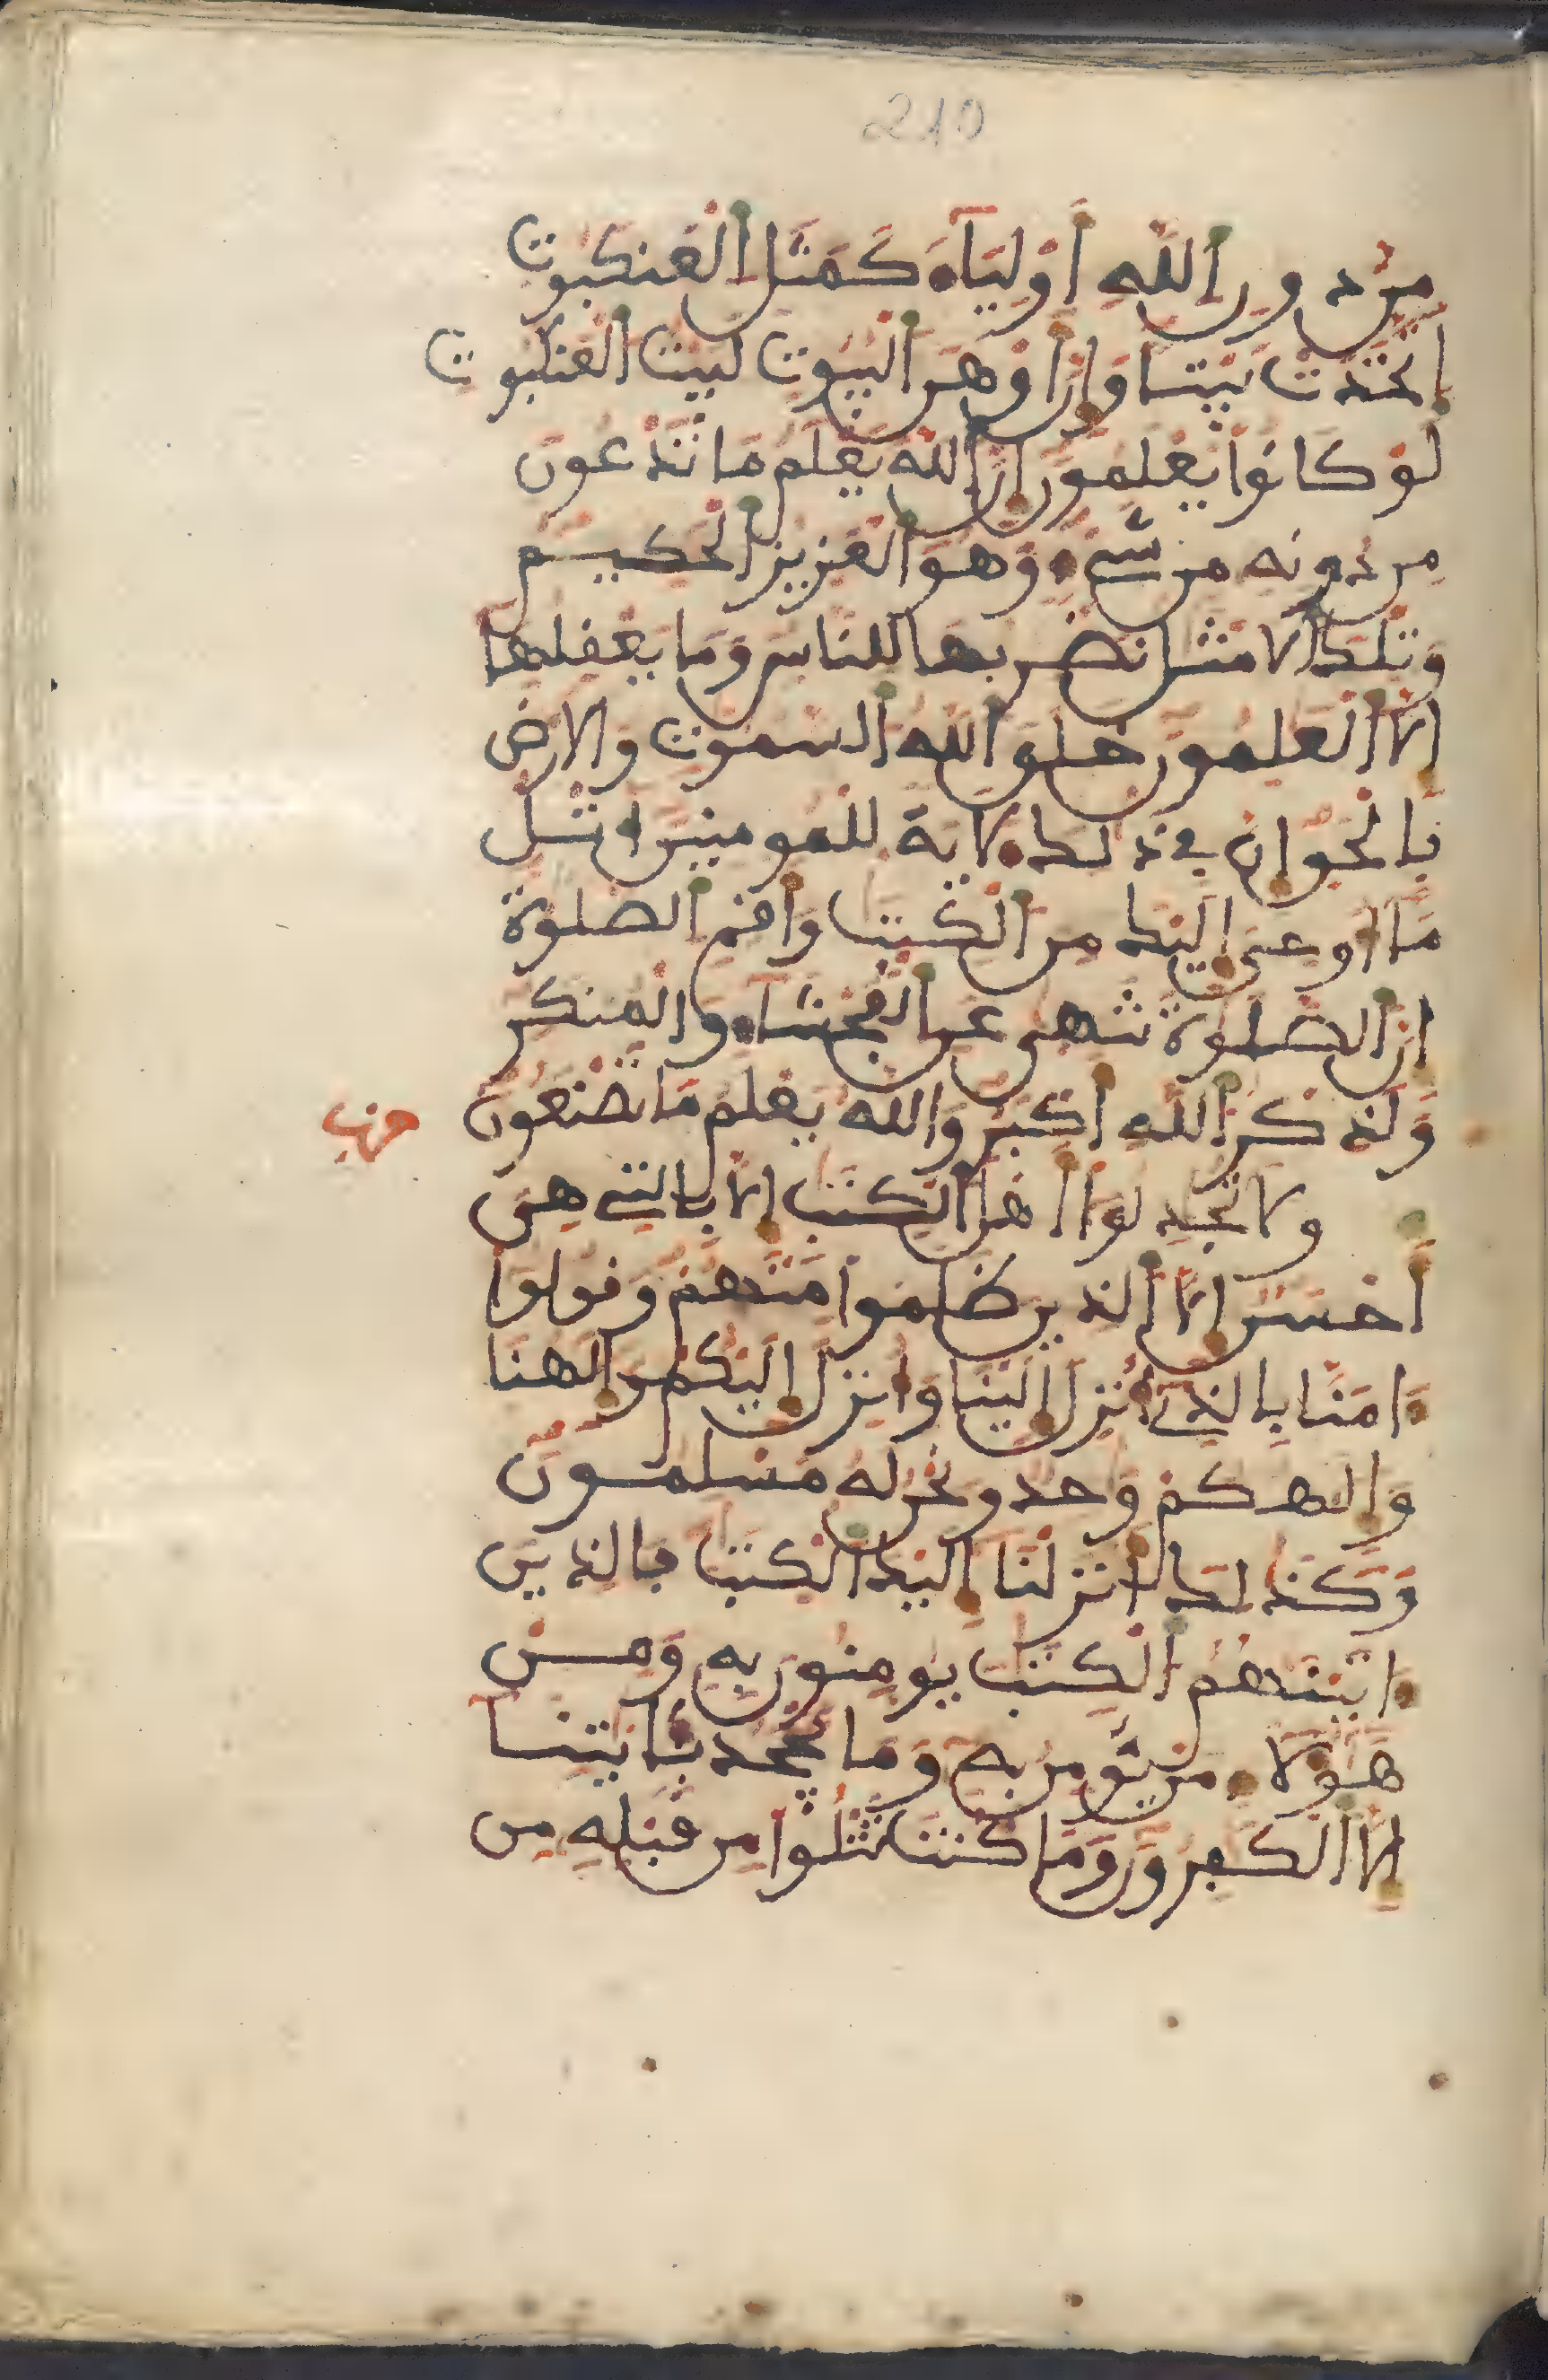 210
مِن دُونِ اَللَّهِ أَوْلِيَآءَ كَمَثَلِ اِلْعَنكَبُوتِ
اِتَّخَذَتْ بَيْتاً وَإِنَّ أَوْهَنَ اَلْبُيُوتِ لَبَيْتُ اُلْعَنكَبُوتِ
لَوْ كَانُواْ يَعْلَمُونَ إِنَّ اَللَّهَ يَعْلَمُ مَا تَدْعُونَ
مِن دُونِهِ مِن شَيْءٍ وَهُوَ اَلْعَزِيزُ اُلْحَكِيمُ
وَتِلْكَ اَلَامْثَلُ نَضْرِبُهَا لِلنَّاسِ وَمَا يَعْفِلُهَا
إِلَّا اَلْعَلِمُونَ خَلَقَ اَللَّهُ اُلسَّمَوَتِ وَالَارْضَ
بِالْحَقِّ إِنَّ فِي ذَلِكَ ءَلَايَةً لِلْمُومِنِينَ اَتْلُ
مَا أُوحِيَ إِلَيْكَ مِنَ اَلْكِتَبِ وَأَفِمِ اِلصَّلَوةَ
إِنَّ اَلصَّلَوةَ تَنْهَى عَنِ اِلْفَحْشَآءِ وَالْمُنكَرِ
وَلَذِكْرُ اُللَّهِ أَكْبَرُ وَاللَّهُ يَعْلَمُ مَا تَصْنَعُونَ
حزب
وَلَا تُجَدِلُواْ أَهْلَ اَلْكِتَبِ إِلَّا بِالتِي هِيَ
أَحْسَنُ إِلَّا اَلذِينَ ظَلَمُواْ مِنْهُمْ وَفُولُواْ
ءَامَنَّا بِالذِي أُنزِلَ إِلَيْنَا وَأُنزِلَ إِلَيْكُمْ وَإِلَهُنَا
وَإِلَهُكُمْ وَحِدٌ وَنَحْنُ لَهُ مُسْلِمُونَ
وَكَذَلِكَ أَنزَلْنَا إِلَيْكَ اَلْكِتَبَ فَالذِينَ
ءَاتَيْنَهُمُ اُلْكِتَبَ يُومِنُونَ بِهِ وَمِنْ
هَؤُلَاءِ مَنْ يُّومِنُ بِهِ وَمَا يَجْحَدُ بِئَايَتِنَا
إِلَّا اَلْكَفِرُونَ وَمَا كُنتَ تَتْلُواْ مِن قَبْلِهِ مِن